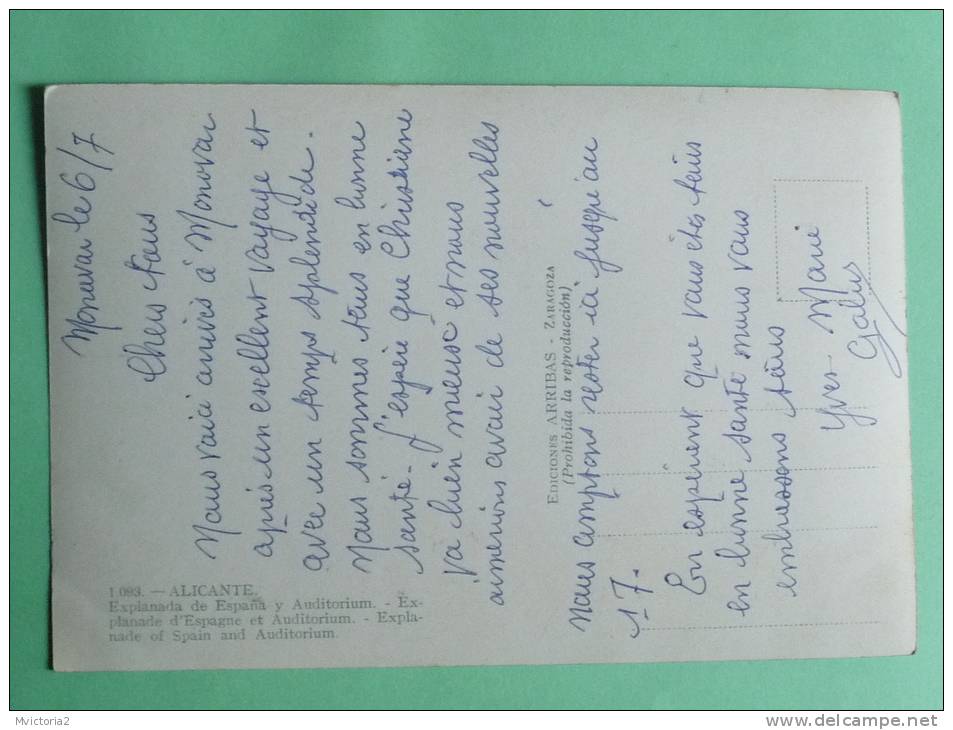 Monovar le 6/7
Chers tous
Nous voici arrivés à Monovar
après un excellent voyage et
avec un temps splendide.
Nous sommes tous en bonne
santé - J'espère que Christiane
va bien mieux et nous
aimerions avoir de ses nouvelles
Nous comptons rester ici jusqu'au
17.
En espérant que vous êtes tous
en bonne santé nous vous
embrassons tous
Yves - Marie
1.093. — ALICANTE.
Explanada de España y Auditorium. - Ex-
planade d'Espagne et Auditorium. - Expla-
nade of Spain and Auditorium.
EDICIONES ARRIBAS - ZARAGOZA
(Prohibida la reproducción)
Mvictoria2
www.delcampe.net